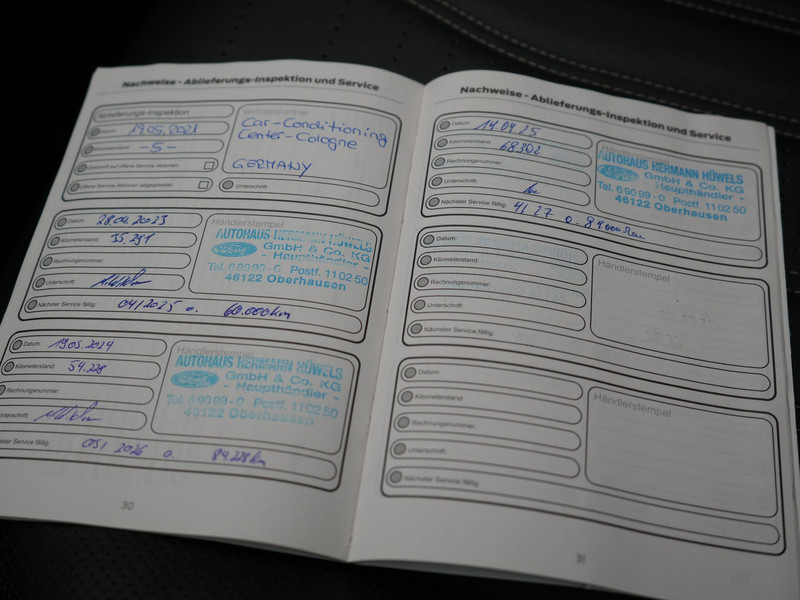 Nachweise - Ablieferungs-Inspektion und Service
Ablieferungs-Inspektion
Datum: 19.05.2021
Kilometerstand: -5-
offene Service Aktionen abgearbeitet
Car-Conditioning
Center-Cologne
GERMANY
Unterschrift:
Datum: 28.04.2023
Kilometerstand: 35.251
Rechnungsnummer:
Unterschrift:
Nächster Service fällig: 04/2025 o. 60.000km
Händlerstempel
AUTOHAUS HERMANN HÜWELS
Ford
GmbH & Co. KG
- Haupthändler -
Tel. 69099-0 Postf. 110250
46122 Oberhausen
Datum: 19.05.2024
Kilometerstand: 54.228
Rechnungsnummer:
Unterschrift:
Nächster Service fällig: 05/2026 o. 84.228km
Händlerstempel
AUTOHAUS HERMANN HÜWELS
Ford
GmbH & Co. KG
- Haupthändler -
Tel. 69099-0 Postf. 110250
46122 Oberhausen
30
Nachweise - Ablieferungs-Inspektion und Service
Datum: 14.04.25
Kilometerstand: 68302
Rechnungsnummer:
Unterschrift:
Nächster Service fällig: 4/27 o. 84000km
AUTOHAUS HERMANN HÜWELS
Ford
GmbH & Co. KG
- Haupthändler -
Tel. 69099-0 Postf. 110250
46122 Oberhausen
Datum:
Kilometerstand:
Rechnungsnummer:
Unterschrift:
Nächster Service fällig:
Händlerstempel
Datum:
Kilometerstand:
Rechnungsnummer:
Unterschrift:
Nächster Service fällig:
Händlerstempel
31